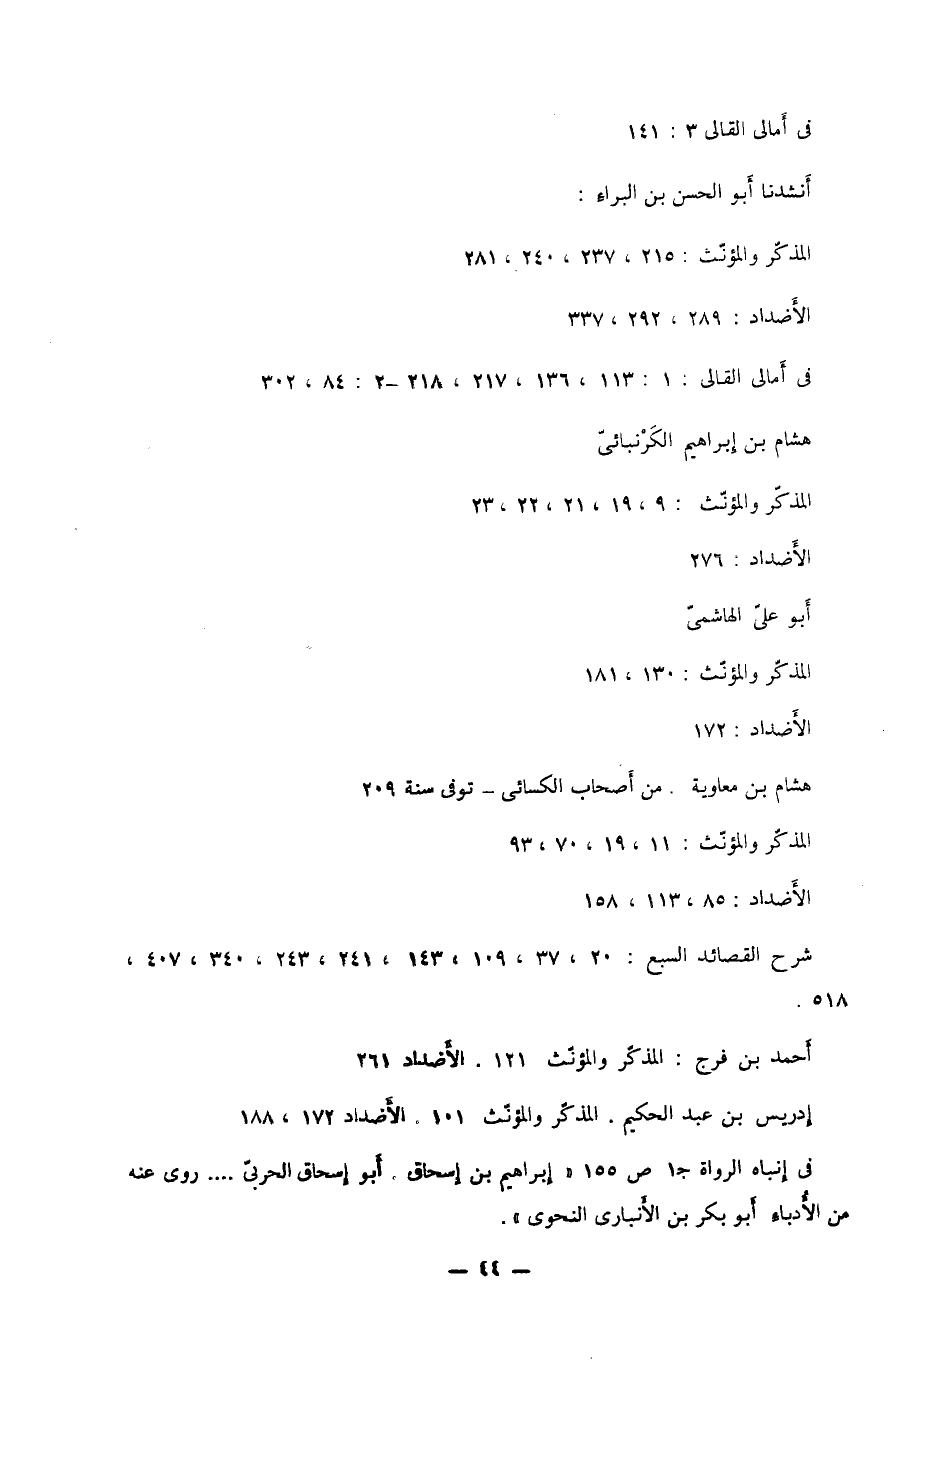 فى أَمالى القالى ٣ : ١٤١
أَنشدنا أَبو الحسن بن البراء :
المذكّر والمؤنّث : ٢١٥ ، ٢٣٧ ، ٢٤٠ ، ٢٨١
الأَضداد : ٢٨٩ ، ٢٩٢ ، ٣٣٧
فى أَمالى القالى : ١ : ١١٣ ، ١٣٦ ، ٢١٧ ، ٢١٨ –٢ : ٨٤ ، ٣٠٢
هشام بن إبراهيم الكَرْنبائىّ
المذكّر والمؤنّث : ٩ ، ١٩ ، ٢١ ، ٢٢ ، ٢٣
الأَضداد : ٢٧٦
أَبو علىّ الهاشمىّ
المذكّر والمؤنّث : ١٣٠ ، ١٨١
الأَضداد : ١٧٢
هشام بن معاوية . من أَصحاب الكسائى – توفى سنة ٢٠٩
المذكّر والمؤنّث : ١١ ، ١٩ ، ٧٠ ، ٩٣
الأَضداد : ٨٥ ، ١١٣ ، ١٥٨
شرح القصائد السبع : ٢٠ ، ٣٧ ، ١٠٩ ، ١٤٣ ، ٢٤١ ، ٢٤٣ ، ٣٤٠ ، ٤٠٧ ،
٥١٨ .
أَحمد بن فرج : المذكّر والمؤنّث ١٢١ . الأَضداد ٢٦١
إدريس بن عبد الحكيم . المذكّر والمؤنّث ١٠١ . الأَضداد ١٧٢ ، ١٨٨
فى إنباه الرواة ج١ ص ١٥٥ « إبراهيم بن إسحاق . أَبو إسحاق الحربىّ .... روى عنه
من الأُدباء أَبو بكر بن الأَنبارى النحوى » .
– ٤٤ –